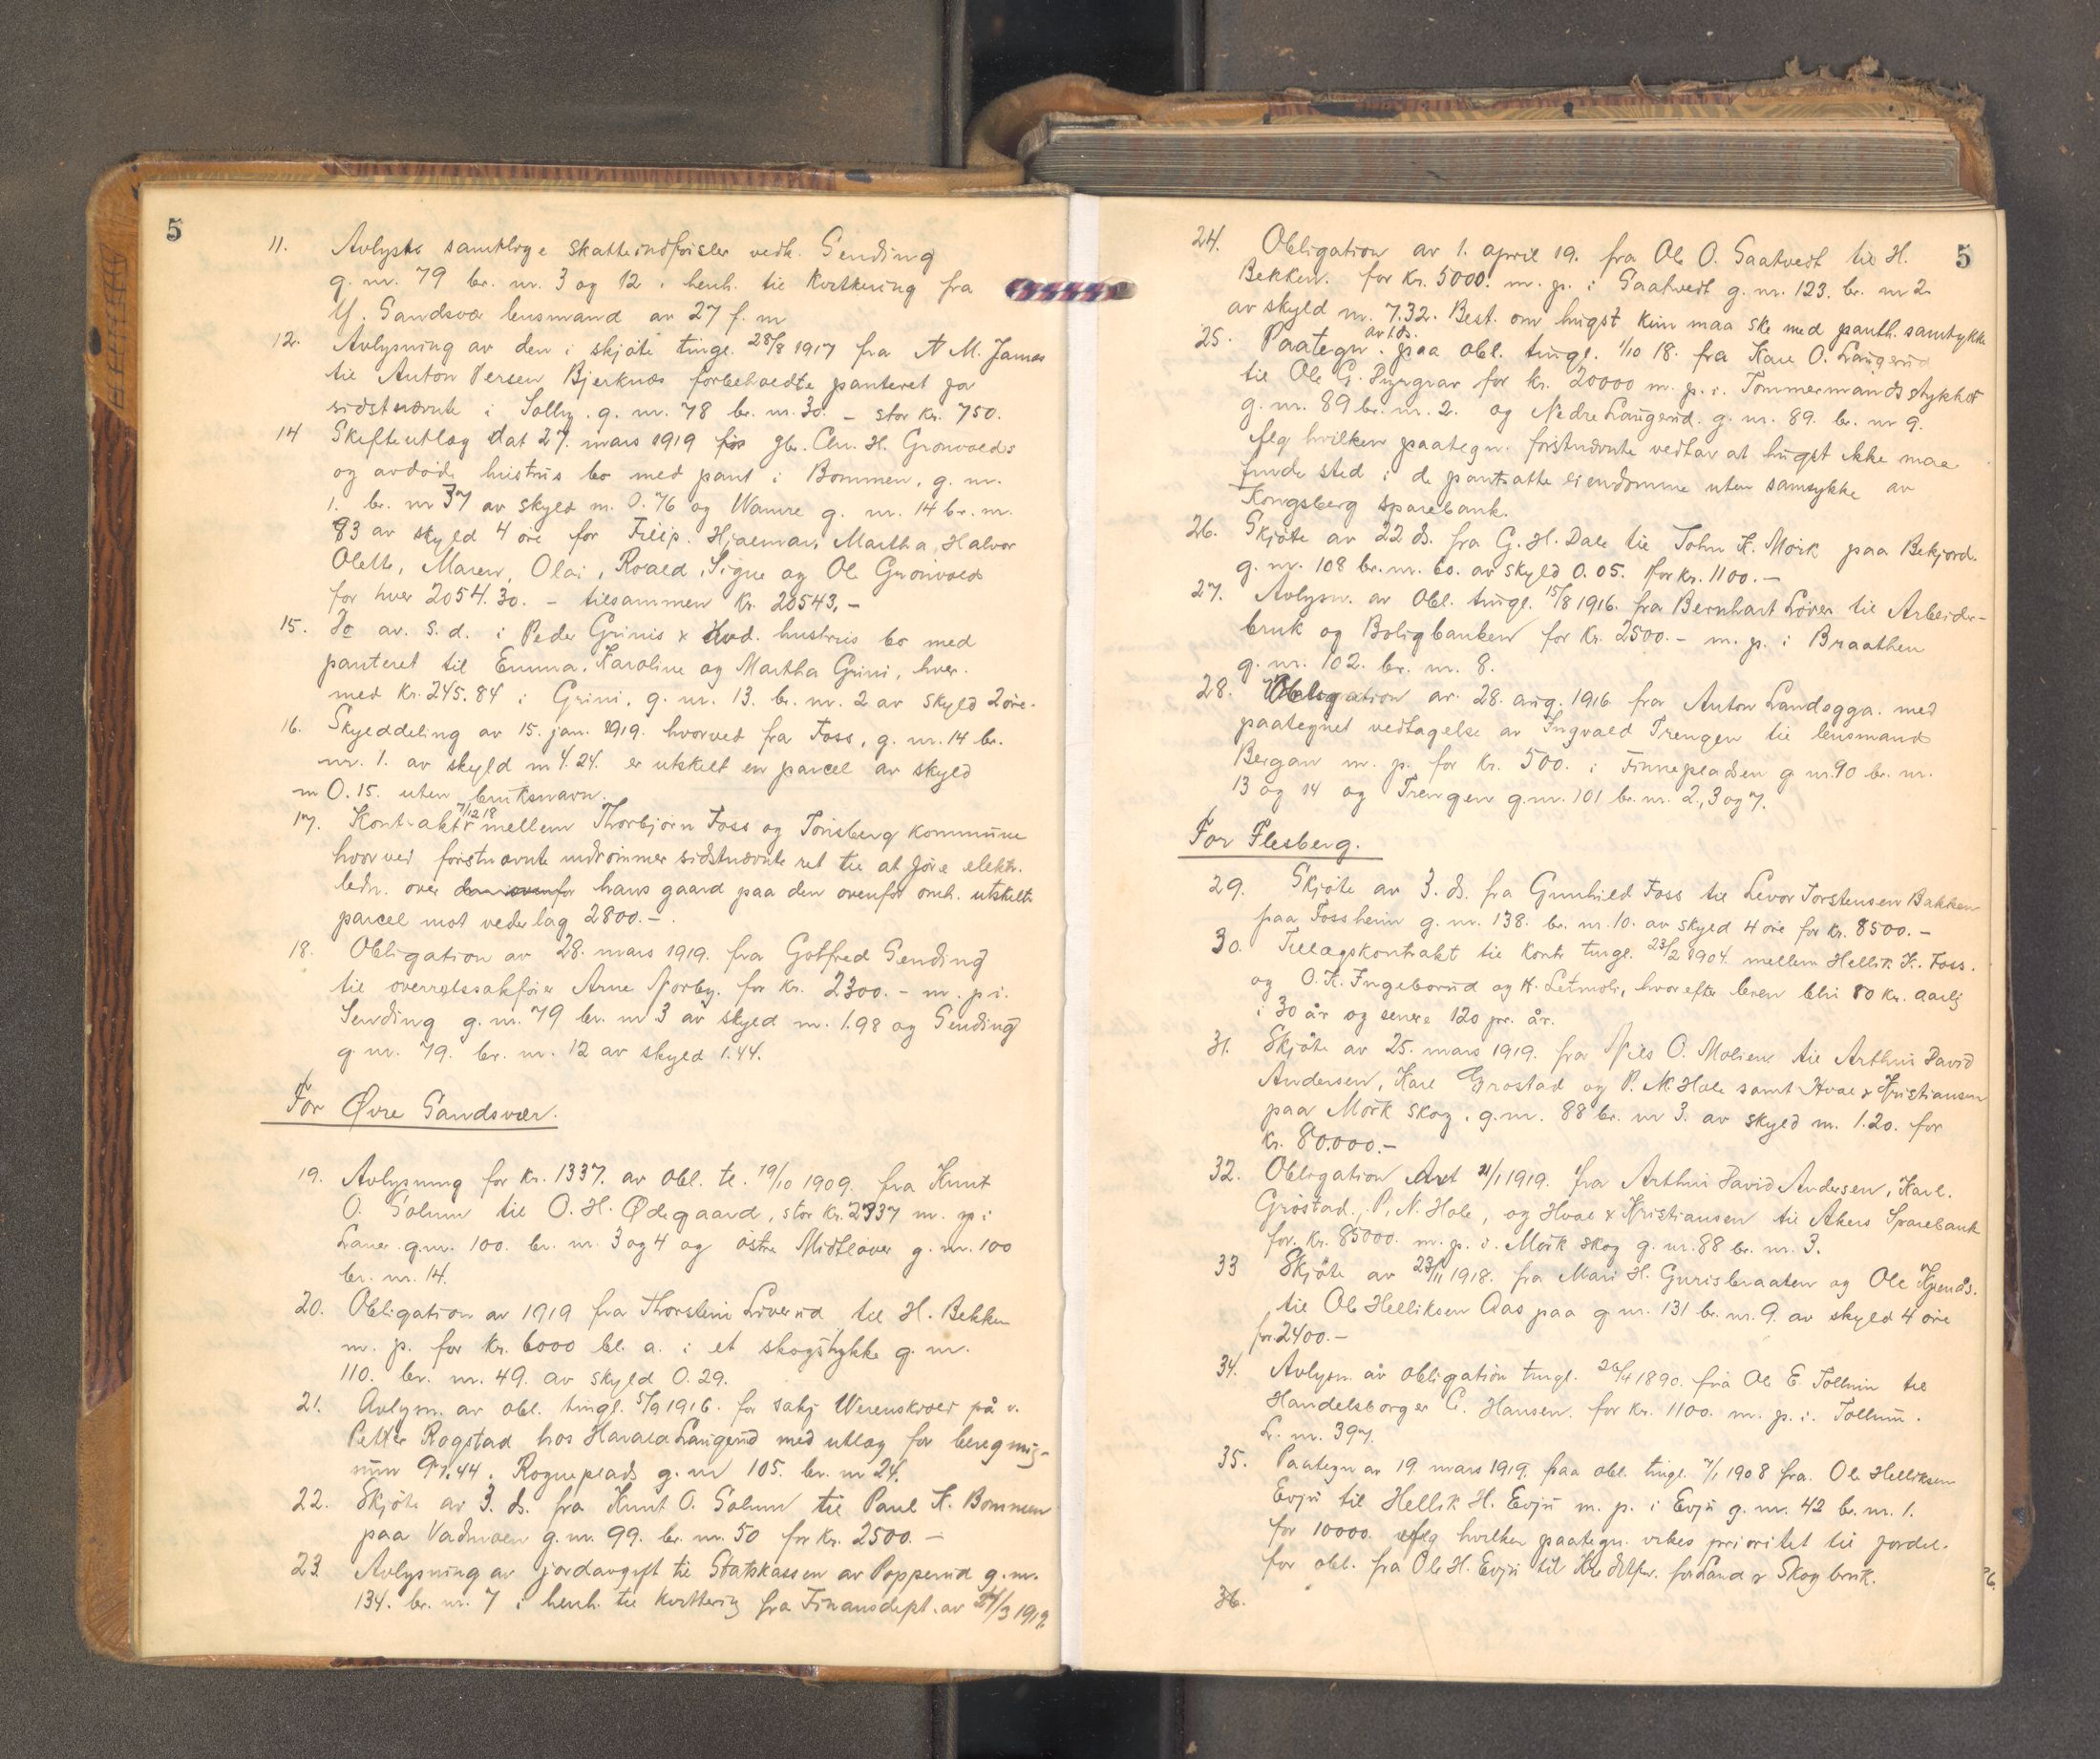 5
11. Avlyses samtlige skatteindførsler vedk. Sending
g. nr. 79 br. nr. 3 og 12 i henh. til kvittering fra
Y. Sandsvær lensmand av 27 f. m
12. Avlysning av den i skjøte tingl. 28/8 1917 fra N M. James
til Anton Persen Bjerknæs forbeholdte panteret for
sidstnævnte i Solby. g. nr. 78 br. nr. 30. – stor kr. 750.
14 Skifteutlæg dat 27. mars 1919 for gbr. Chr. H. Gronvolds
og avdøde hustrus bo med pant i Bommen, g. nr.
1. br. nr 37 av skyld m. 0.76 og Wamre g. nr. 14 br. nr.
83 av skyld 4 øre for Filip. Hjalmar, Martha, Halvor
Olette, Maren, Olai, Roald, Signe og Ole Grønvold
for hver 2054.30. – tilsammen kr. 20543,–
15. Do av. s. d. i Peder Grinis & avd. hustrus bo med
panteret til Emma, Karoline og Martha Grini, hver.
med kr. 245.84 i Grini, g. nr. 13. br. nr. 2 av skyld 2 øre.
16. Skylddeling av 15. jan. 1919. hvorved fra Foss, g. nr. 14 br.
nr. 1. av skyld m 4.24. er utskilt en parcel av skyld
m 0.15. uten bruksnavn.
17. Kontrakt 7/12 18 mellem Thorbjørn Foss og Tønsberg kommune
hvorved førstnævnte indrømmer sidstnævnte ret til at føre elektr.
ledn. over hans gaard paa den ovenfor omh. utskilte
parcel mot vederlag 2800.–.
18. Obligation av 28. mars 1919. fra Gotfred Sending
til overretssakfører Arne Nørby. for kr. 2300.– m. p i.
Sending g. nr. 79 br. nr 3 av skyld m. 1.98 og Sending
g. nr. 79. br. nr. 12 av skyld 1.44.
For Øvre Sandsvær.
19. Avlysning for kr. 1337. av obl. tl. 19/10 1909. fra Knut
O. Solum til O. H. Ødegaard, stor kr. 2337 m. p i
Laver g.nr. 100. br. nr. 3 og 4 og østre Midtløver g. nr. 100
br. nr. 14.
20. Obligation av 1919 fra Thorstein Liverud til H. Bekken
m. p. for kr. 6000 bl. a. i et skogstykke g. nr.
110. br. nr. 49. av skyld 0.29.
21. Avlysn. av obl. tingl. 5/9 1916. for sakf Werenskiold på v.
Petter Rogstad hos Harald Langerud med utlæg for
97.44. Rogneplads g. nr 105. br. nr 24.
22. Skjøte av 3. ds. fra Knut O. Solum til Paul K. Bommen
paa Vadmoen g. nr. 99. br. nr. 50 for kr. 2500.–
23. Avlysning av jordavgift til Statskassen av Popperud g.nr.
134. br. nr. 7 i henh. til kvittering fra Finansdept. av 27/3 1919.
5
24. Obligation av 1. april 19. fra Ole O. Saatvedt til H.
Bekken. for kr. 5000. m. p. i Saatvedt g. nr. 123. br. nr 2.
av skyld m. 7.32. Best. om hugst kun maa ske med panth. samtykke
25. Paategn. av 1 ds. paa obl. tingl. 1/10 18. fra Karl O. Langerud
til Ole G. for kr. 20000 m. p. i. Tømmermandsstykket
g. nr. 89 br. nr. 2. og Nedre Langerud. g. nr. 89. br. nr 9.
ifølg hvilken paategn. førstnævnte vedtar at hugst ikke maa
finde sted i de pantsatte eiendomme uten samtykke av
Kongsberg sparebank.
26. Skjøte av 22 ds. fra G. H. Dale til John K. Mørk paa Bekjord.
g. nr. 108 br. nr. 60. av skyld 0.05. for kr. 1100.–
27. Avlysn. av Obl. tingl. 15/8 1916. fra Bernhart Løver til Arbeider-
bruk og Boligbanken for kr. 2500.– m. p. i Braathen
g. nr. 102. br. nr. 8.
28. Obligation av. 28. aug. 1916 fra Anton Landsgga. med
paategnet vedtagelse av Ingvald Trengen til lensmand
Bergan m. p. for kr. 500. i Finnepladsen g nr. 90 br. nr.
13 og 14 og Trengen g.nr. 101 br. nr. 2, 3 og 7.
For Flesberg.
29. Skjøte av 3. ds. fra Gunhild Foss til Levor Torstensen Bakken
paa Fossheim g. nr. 138. br. nr. 10. av skyld 4 øre for kr. 8500.–
30. Tillægskontrakt til kontr tingl. 23/2 1904. mellem Hellik K. Foss.
og O. K. Ingeborud og K. Letmoli, hvorefter leien blir 80 kr. aarlig
i 30 år og senere 120 pr. år.
31. Skjøte av 25. mars 1919. fra Nils O. Molien til Arthur David
Andersen, Karl Grøstad og P. N. Hole samt Hval & Kristiansen
paa Mørk skog. g.nr. 88 br. nr 3. av skyld m. 1.20. for
kr. 80.000.–
32. Obligation dat 21/1 1919. fra Arthur David Andersen, Karl.
Grøstad, P. N. Hole, og Hval & Kristiansen til Akers Sparebank
for. kr. 85000. m. p. i. Mørk skog g. nr. 88 br. nr. 3.
33 Skjøte av 23/11 1918. fra Mari H. Gurisbraaten og Ole
til Ole Helliksen Aas paa g nr. 131 br. nr. 9. av skyld 4 øre
for 2400.–
34. Avlysn. av obligation tingl. 26/4 1890. fra Ole E. Tollum til
Handelsborger C. Hansen. for kr. 1100. m. p. i. Tollum.
L. nr. 397.
35. Paategn av 19. mars 1919. paa obl. tingl. 7/1 1908 fra. Ole Helliksen
Evju til Hellik H. Evju m. p. i Evju g. nr. 42 br. nr. 1.
for 10000. iflg hvilken paategn. vikes prioritet til fordel.
for obl. fra Ole H. Evju til for Land & Skogbruk.
36.